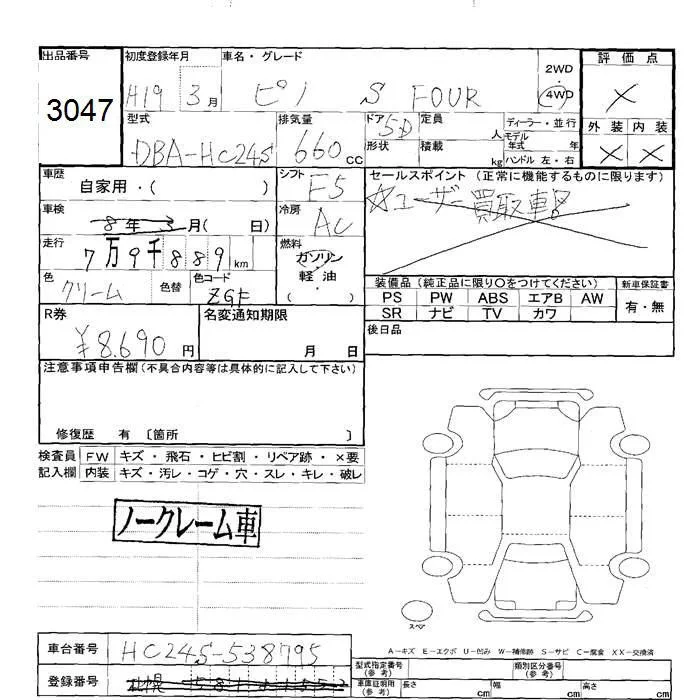 出品番号 初度登録年月 車名・グレード 2WD 評価点
3047 H19 3月 ピノ S FOUR 4WD ×
型式 排気量 ドア 定員 ディーラー・並行 外装 内装
DBA-HC24S 660cc 5D 人 モデル年式 年 × ×
形状 積載 kg ハンドル 左・右
車歴 自家用・( ) シフト F5 セールスポイント (正常に機能するものに限ります)
車検 8年3月( 日) 冷房 AC ☆ユーザー買取車
走行 7万9千889km 燃料 ガソリン
軽油
( )
色 クリーム 色替 色コード ZGF 装備品 (純正品に限り○をつけてください) 新車保証書
PS PW ABS エアB AW 有・無
SR ナビ TV カワ
R券 ¥8,690円 名変通知期限 月 日 後日品
注意事項申告欄(不具合内容等は具体的に記入して下さい)
修復歴 有 〔箇所 〕
検査員 FW キズ・飛石・ヒビ割・リペア跡・×要
記入欄 内装 キズ・汚レ・コゲ・穴・スレ・キレ・破レ
ノークレーム車
スペア
A-キズ E-エクボ U-凹み W-補修跡 S-サビ C-腐食 XX-交換済
車台番号 HC24S-538795
型式指定番号(参考) 類別区分番号(参考)
登録番号 札幌
車庫証明用(参考) 長さ cm 幅 cm 高さ cm